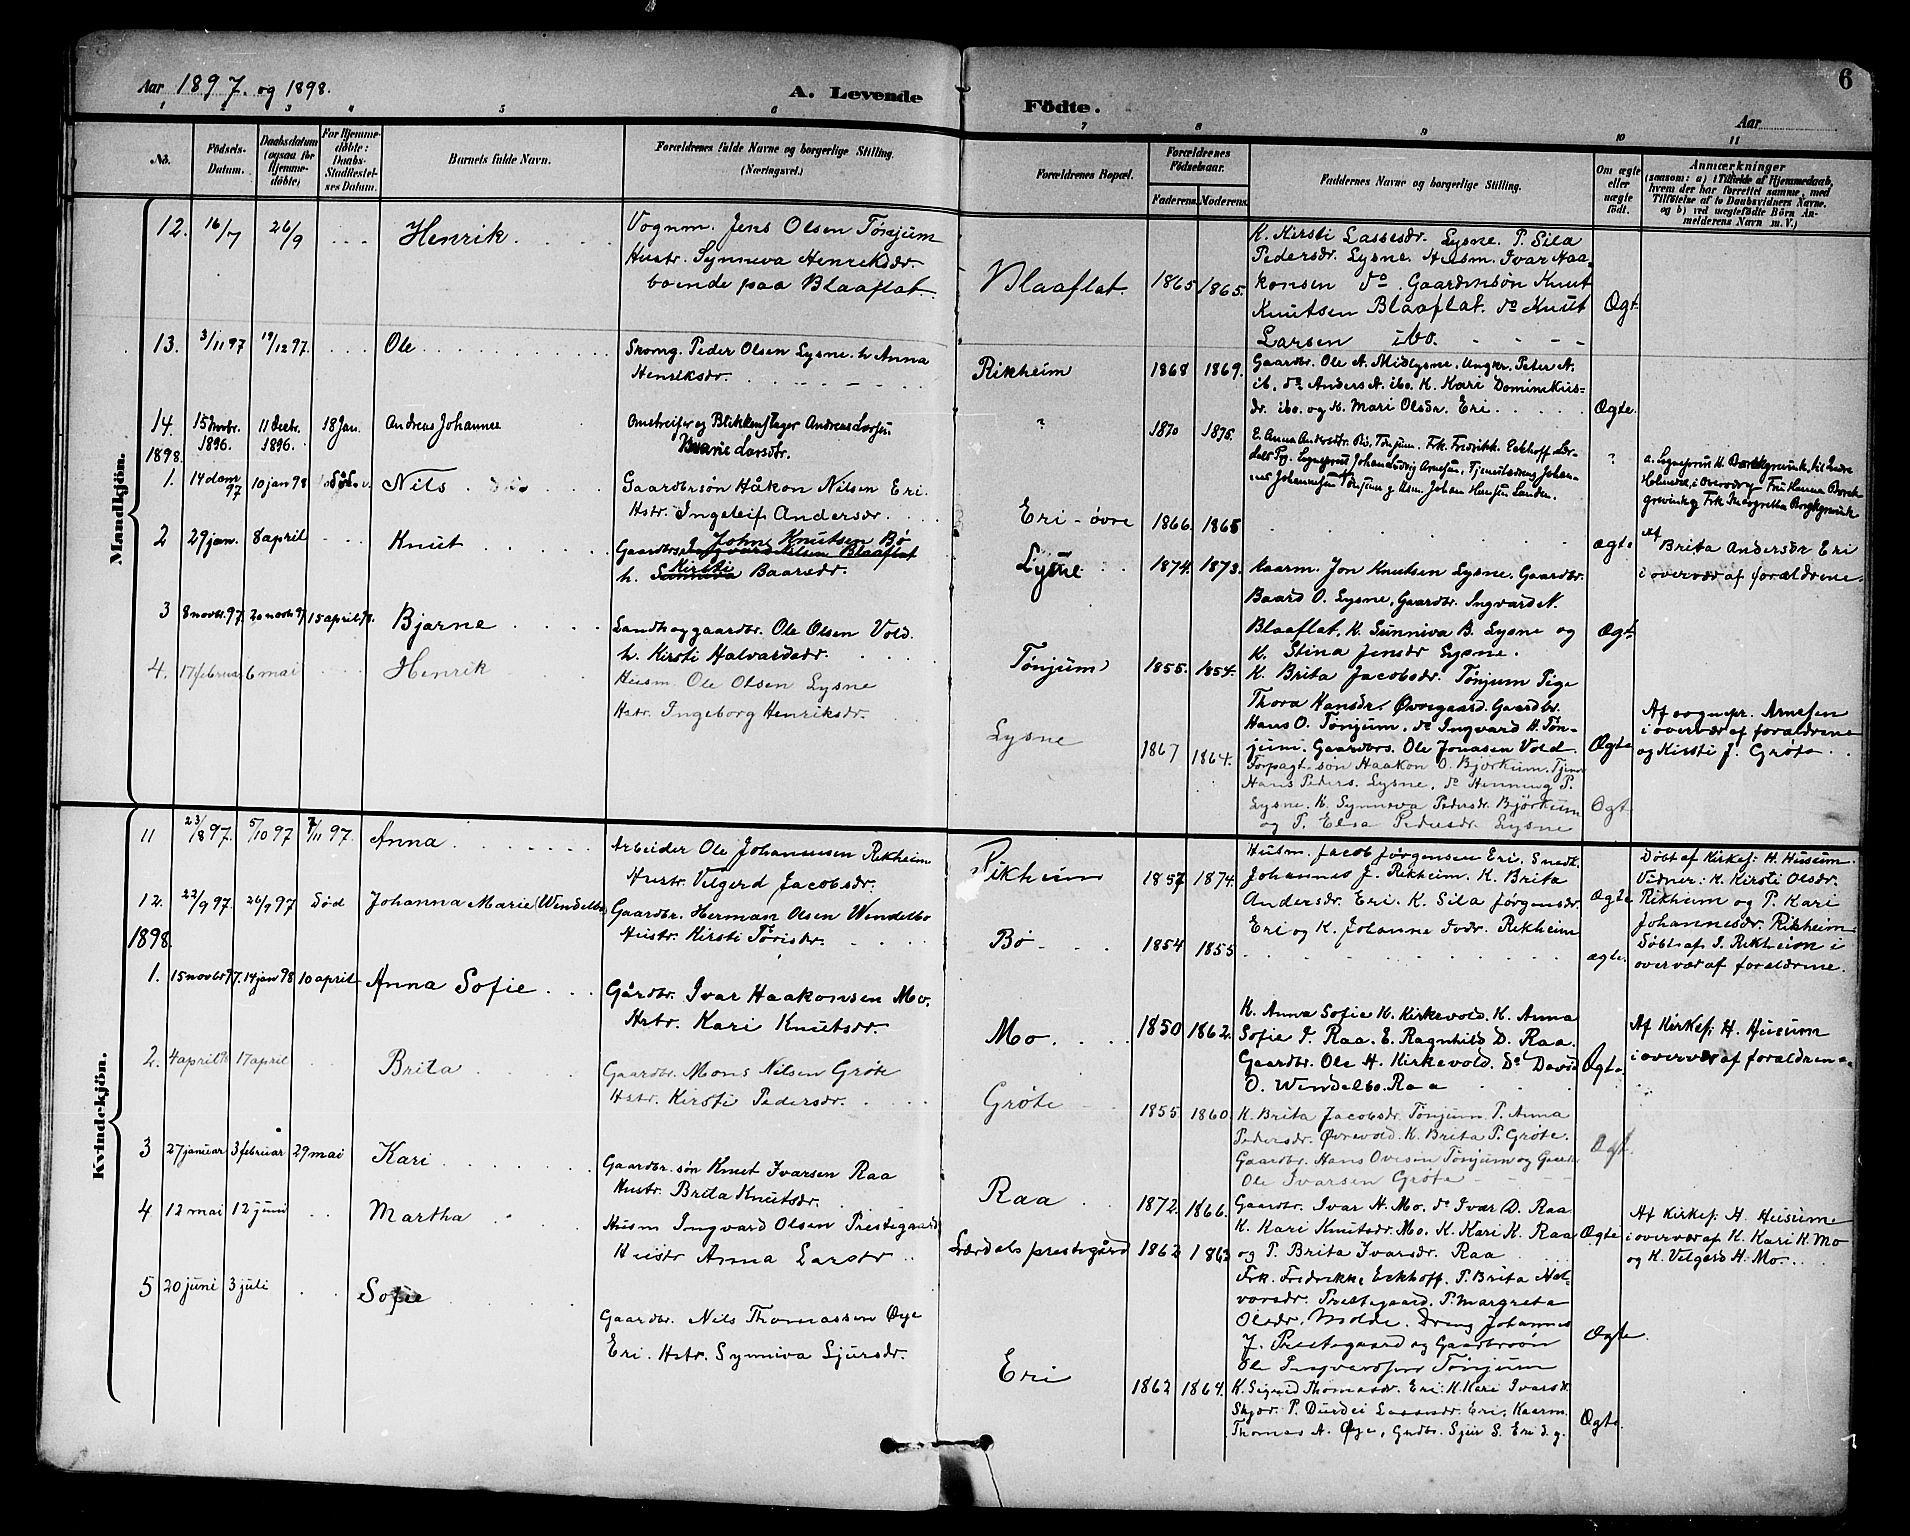 Aar 1897. og 1898.
A. Levende Födte.
Aar
6
1 2 3 4 5 6 7 8 9 10 11
No.
Födsels-Datum.
Daabsdatum (ogsaa for Hjemmedöbte)
For Hjemmedöbte: Daabs-Stadfæstelses Datum.
Barnets fulde Navn.
Forældrenes fulde Navne og borgerlige Stilling. (Næringsvei.)
Forældrenes Bopæl.
Forældrenes Födselsaar.
Faderens. Moderens.
Faddernes Navne og borgerlige Stilling.
Om ægte eller uægte født.
Anmærkninger
(saasom: a) i Tilfælde af Hjemmedaab, hvem der har forrettet samme, med Tilføielse af to Daabsvidners Navne. og b) ved uægtefödte Börn Anmelderens Navn m. V.)
Mandkjön.
12. 16/7 26/9 Henrik.
Vognm. Jens Olsen Tønjum
Hustr. Synneva Henriksdr.
boende paa Blaaflat.
Blaaflat. 1865 1865.
K. Kirsti Lassesdr. Lysne. P. Sila
Pedersdr. Lysne. Husm. Ivar Haa-
konsen do. Gaardmsøn Knut
Knutsen Blaaflat. do Knut
Larsen ibo.
Ægt.
13. 3/11 97 19/12 97. Ole
Skomg. Peder Olsen Lysne. h. Anna
Henriksdr.
Rikheim 1868 1869.
Gaardbr. Ole A. Midlysne, Ungkr. Peter A.
ib. do Anders A. ibo. K. Kari Dominikus-
dr. ibo. og K. Mari Olsdr. Eri.
Ægte.
14. 15 Novbr. 1896. 11 Decbr. 1896. 18 Jan. Andreas Johannes
Omstreifer og Blikkenslager Andreas Larsen
Marie Larsdtr.
? 1870 1875.
E. Anna Andersdr. Tønjum. Frk. Fredrikke Eckhoff
Johan Ludvig Arnesen, Johan-
nes Johannesen Tønjum g Usm. Johan Hansen Landen.
?
1898.
1. 14 dcm 97 10 jan 98 Nils
Gaardbrsøn Håkon Nilsen Eri.
Hstr. Ingeleif Andersdr.
Eri-øvre 1866. 1868
ægte
Af Brita Andersdr Eri
i overvær af forældrene.
2 29 jan. 8 april Knut
John Knutsen Bø
Gaardbrsøn Ingvard Nilsen Blaaflat
Kirsti
h. Sunniva Baarsdr.
Lysne 1874. 1873.
Kaarm. Jon Knutsen Lysne. Gaardbr.
Baard O. Lysne, Gaardbr. Ingvard N.
Blaaflat, K. Sunniva B. Lysne og
K. Stina Jensdr Lysne.
Ægt.
3 8 novbr. 97. 20 novb 97 15 april 98. Bjarne
Landhaggaardbr. Ole Olsen Vold.
h. Kirsti Halvardsdr.
Tønjum 1855. 1854.
K. Brita Jacobsdr. Tønjum Pige
Thora Hansdr. Øvregaard. Gaardbr.
Hans O. Tønjum, do Ingvard H. Tøn-
jum. Gaardbrs. Ole Jonasen Vold
Ægte
Af sognepr. Arnesen
i overvær af forældrene
og Kirsti J. Grøte.
4. 17 februar 6 mai Henrik
Husm. Ole Olsen Lysne
Hstr. Ingeborg Henriksdr.
Lysne 1867 1864.
Forpagt.søn Haakon O. Bjørkum. Tjen.
Hans Peders. Lysne, do Henning P.
Lysne. K. Synneva Pedersdr. Bjørkum
og P. Elsa Pedersdr. Lysne
Ægt.
Kvindekjön.
11 23/8 97. 5/10 97 7/11 97. Anna
Arbeider Ole Johannesen Rikheim
Hustr. Velgerd Jacobsdr.
Rikheim 1857 1874.
Husm. Jacob Jørgensen Eri. Snedk.
Johannes J. Rikheim. K. Brita
Andersdr. Eri. K. Sila Jørgensdr.
Eri og K. Johanne Ivdr. Rikheim
Ægte
Døbt af Kirkes: H. Husum.
Vidner: K. Kirsti Olsdr.
Rikheim og P. Kari
Johannesdr. Rikheim.
12. 22/9 97. 26/9 97 Død Johanna Marie (Wendelbo)
Gaardbr. Herman Olsen Wendelbo
Hustr. Kirsti Tørisdr.
Bø 1854 1855
ægte.
Døbt af J. Rikheim i
overvær af forældrene.
1898.
1. 15 novbr 97. 14 jan 98 10 april Anna Sofie
Gårdbr. Ivar Haakonsen Mo.
Hstr. Kari Knutsdr.
Mo. 1850 1862.
K. Anna Sofie K. Kirkevold. K. Anna
Sofie J. Raa. E. Ragnhild D. Raa.
Gaardbr. Ole H. Kirkevold. Do David
O. Wendelbo. Raa
Ægte
Af Kirkes: H. Husum
i overvær af forældrene
2. 4 april 17 april Brita
Gaardbr. Mons Nilsen Grøte
Hstr. Kirsti Pedersdr.
Grøte 1855 1860
K. Brita Jacobsdr. Tønjum. P. Anna
Pedersdr. Øvrevold. K. Brita P. Grøte.
Gaardbr. Hans Ovesøn Tønjum og Gaardb.
Ole Ivarsen Grøte
Ægt.
3 27 januar 3 februar 29 mai Kari
Gaardbr. søn Knut Ivarsen Raa
Hustr. Brita Knutsdr.
Raa 1872. 1866.
Gaardbr. Ivar H. Mo. do Ivar D. Raa
K. Kari Knutsdr. Mo. K. Kari K. Raa
og P. Brita Ivarsdr. Raa
Ægte
Af Kirkes: H. Husum
i overvær af K. Kari K. Mo
og K. Velgerd H. Mo.
4 12 mai 12 juni Martha
Husm Ingvard Olsen Prestegaard
Hustr Anna Larsdr
Lærdals prestegård 1862 1863
Frk. Fredrikke Eckhoff. P. Brita Hal-
vorsdr. Prestegaard. P. Margreta
Olsdr. Molde. Dreng Johannes
J. Prestegaard og Gaardbrsøn
Ole Ingvardsen Tønjum
Ægte.
5 20 juni 3 juli Sofie
Gaardbr. Nils Thomassen Øye
Eri. Hstr. Synniva Sjursdr.
Eri 1862 1864.
K. Sigrid Thomasdr. Eri. K. Kari Ivarsdr.
Skjør. P. Durdei Lassesdr. Eri, Kaarm.
Thomas A. Øye, Grdbr. Sjur S. Eri d. y.
Ægte.